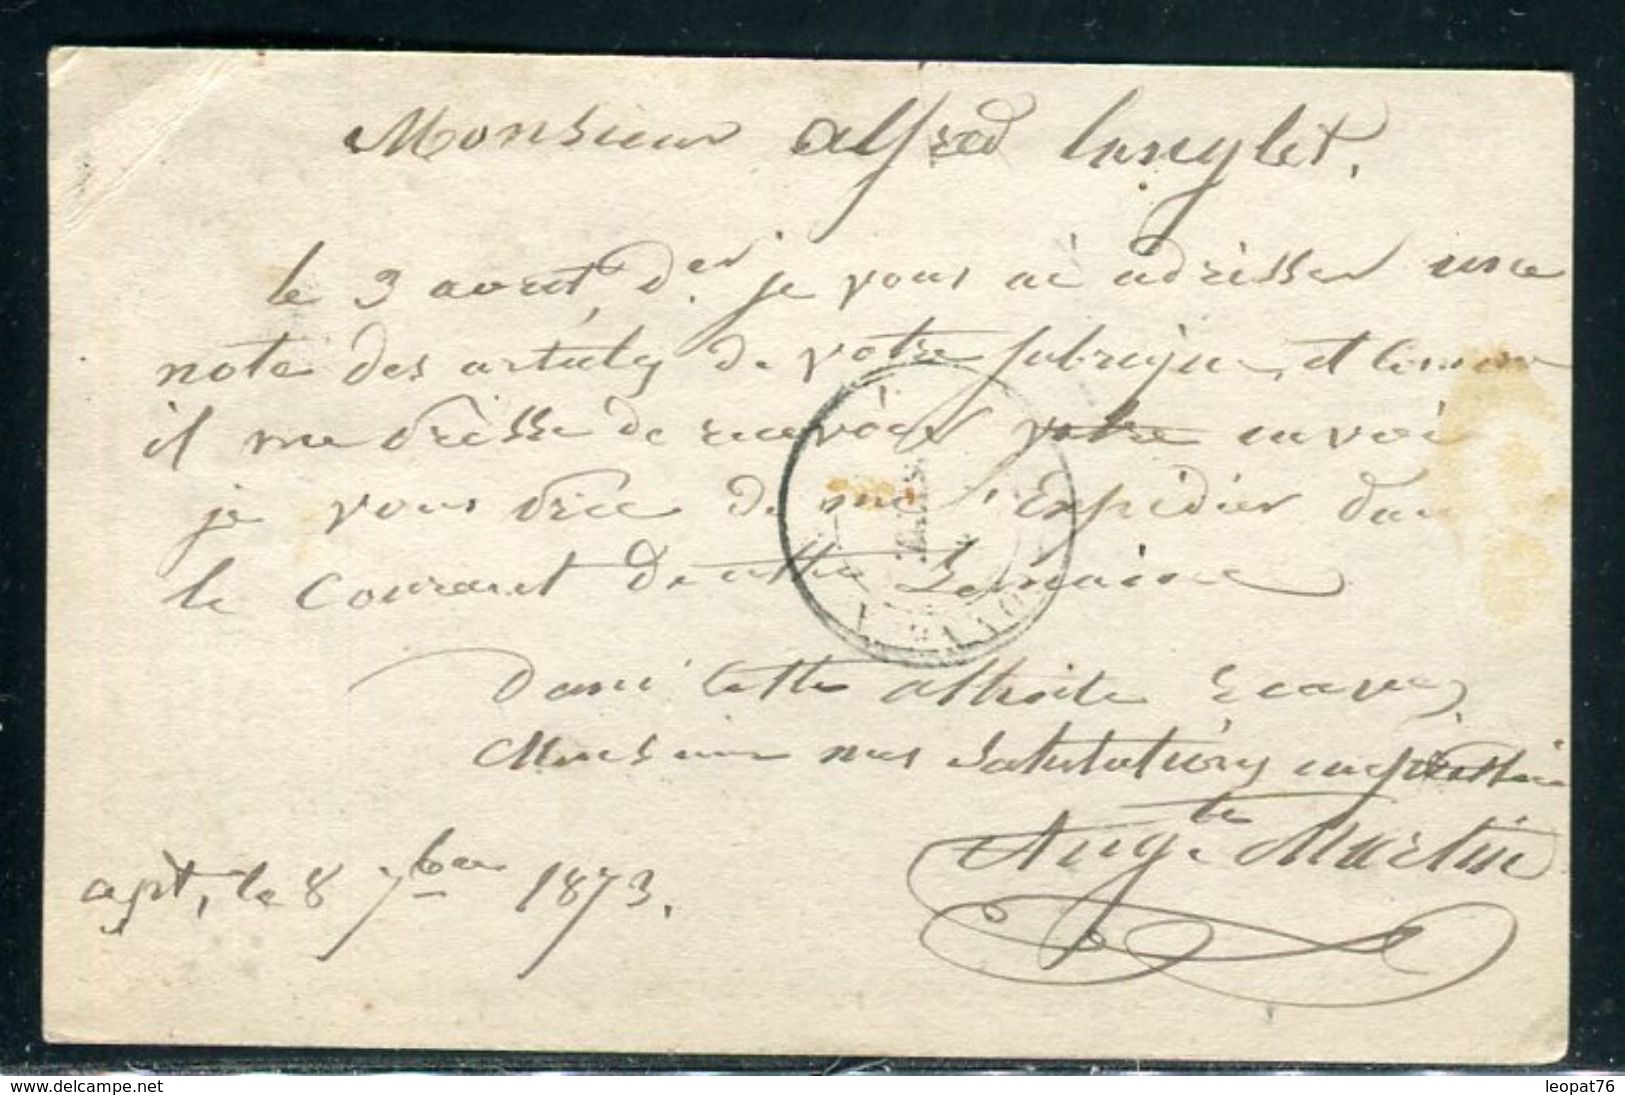 Monsieur alfred langlet.
le 3 avril, d.er je vous ai adresser une
note des articles de votre fabrique, et
il me dresse de recevoir votre envoi
je vous prie de me l'expédier dan
le courant de cette Semaine
Dans cette attente recevez
Monsieur mes Salutations
Aug.te Martin
apt, le 8 7bre 1873.
www.delcampe.net
leopat76